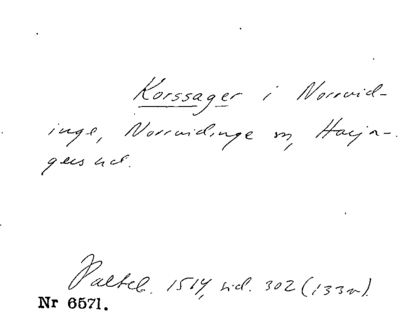 Korssager i Norrvid-
inge, Norrvidinge sn, Harja-
gers hd.
Palteb. 1514, sid. 302 (133v).
Nr 6571.